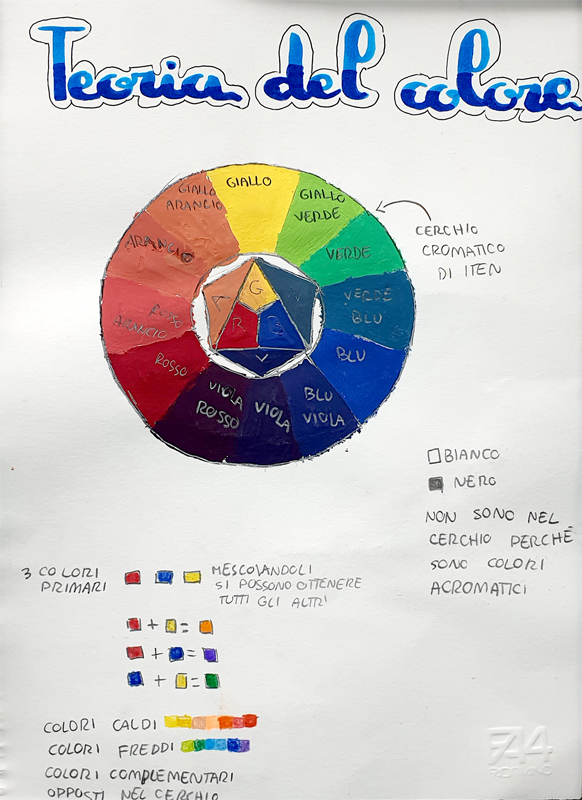 Teoria del colore
GIALLO
GIALLO
VERDE
VERDE
VERDE
BLU
BLU
BLU
VIOLA
VIOLA
VIOLA
ROSSO
ROSSO
ROSSO
ARANCIO
ARANCIO
GIALLO
ARANCIO
G
A
V
R
B
V
CERCHIO
CROMATICO
DI ITEN
BIANCO
NERO
NON SONO NEL
CERCHIO PERCHÉ
SONO COLORI
ACROMATICI
3 COLORI
PRIMARI
MESCOLANDOLI
SI POSSONO OTTENERE
TUTTI GLI ALTRI
+ =
+ =
+ =
COLORI CALDI
COLORI FREDDI
COLORI COMPLEMENTARI
OPPOSTI NEL CERCHIO
FA4
FABRIANO